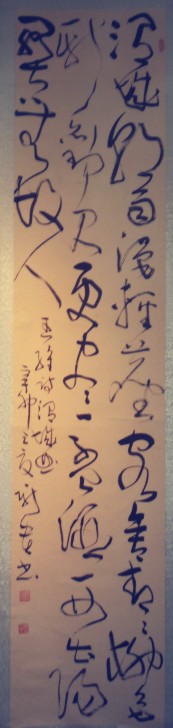 渭城朝雨浥輕塵客舍青青柳色
新勸君更盡一杯酒西出陽
關無故人
王維詩渭城曲
辛卯之夏書